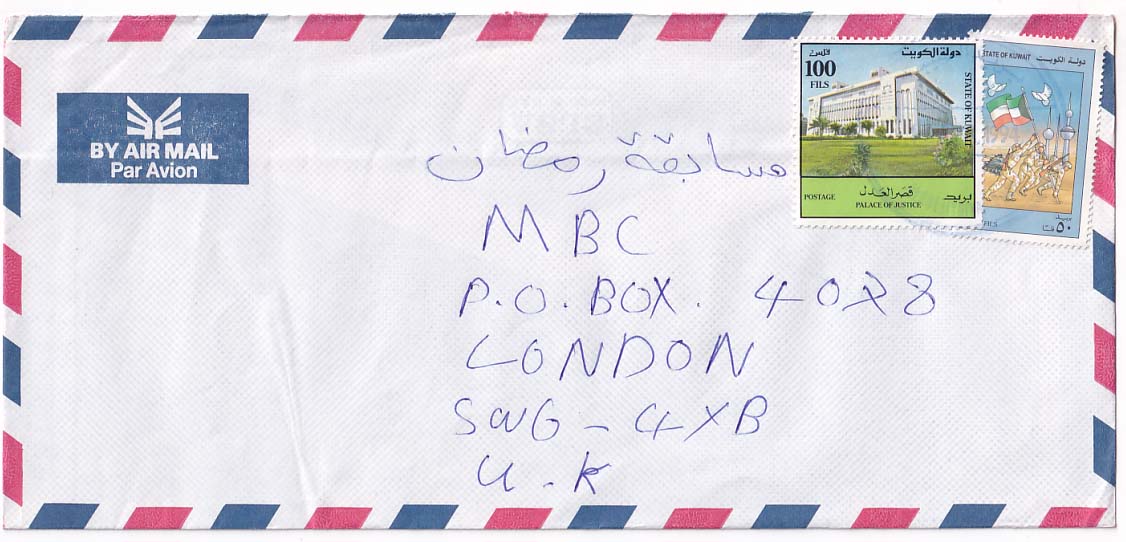 BY AIR MAIL
Par Avion
فلس
100
FILS
دولة الكويت
STATE OF KUWAIT
قصر العدل
POSTAGE
PALACE OF JUSTICE
بريد
STATE OF KUWAIT
دولة الكويت
بريد
٥٠
FILS
مسابقة رمضان
MBC
P.O. BOX. 4028
LONDON
SW6 - 4XB
U.K